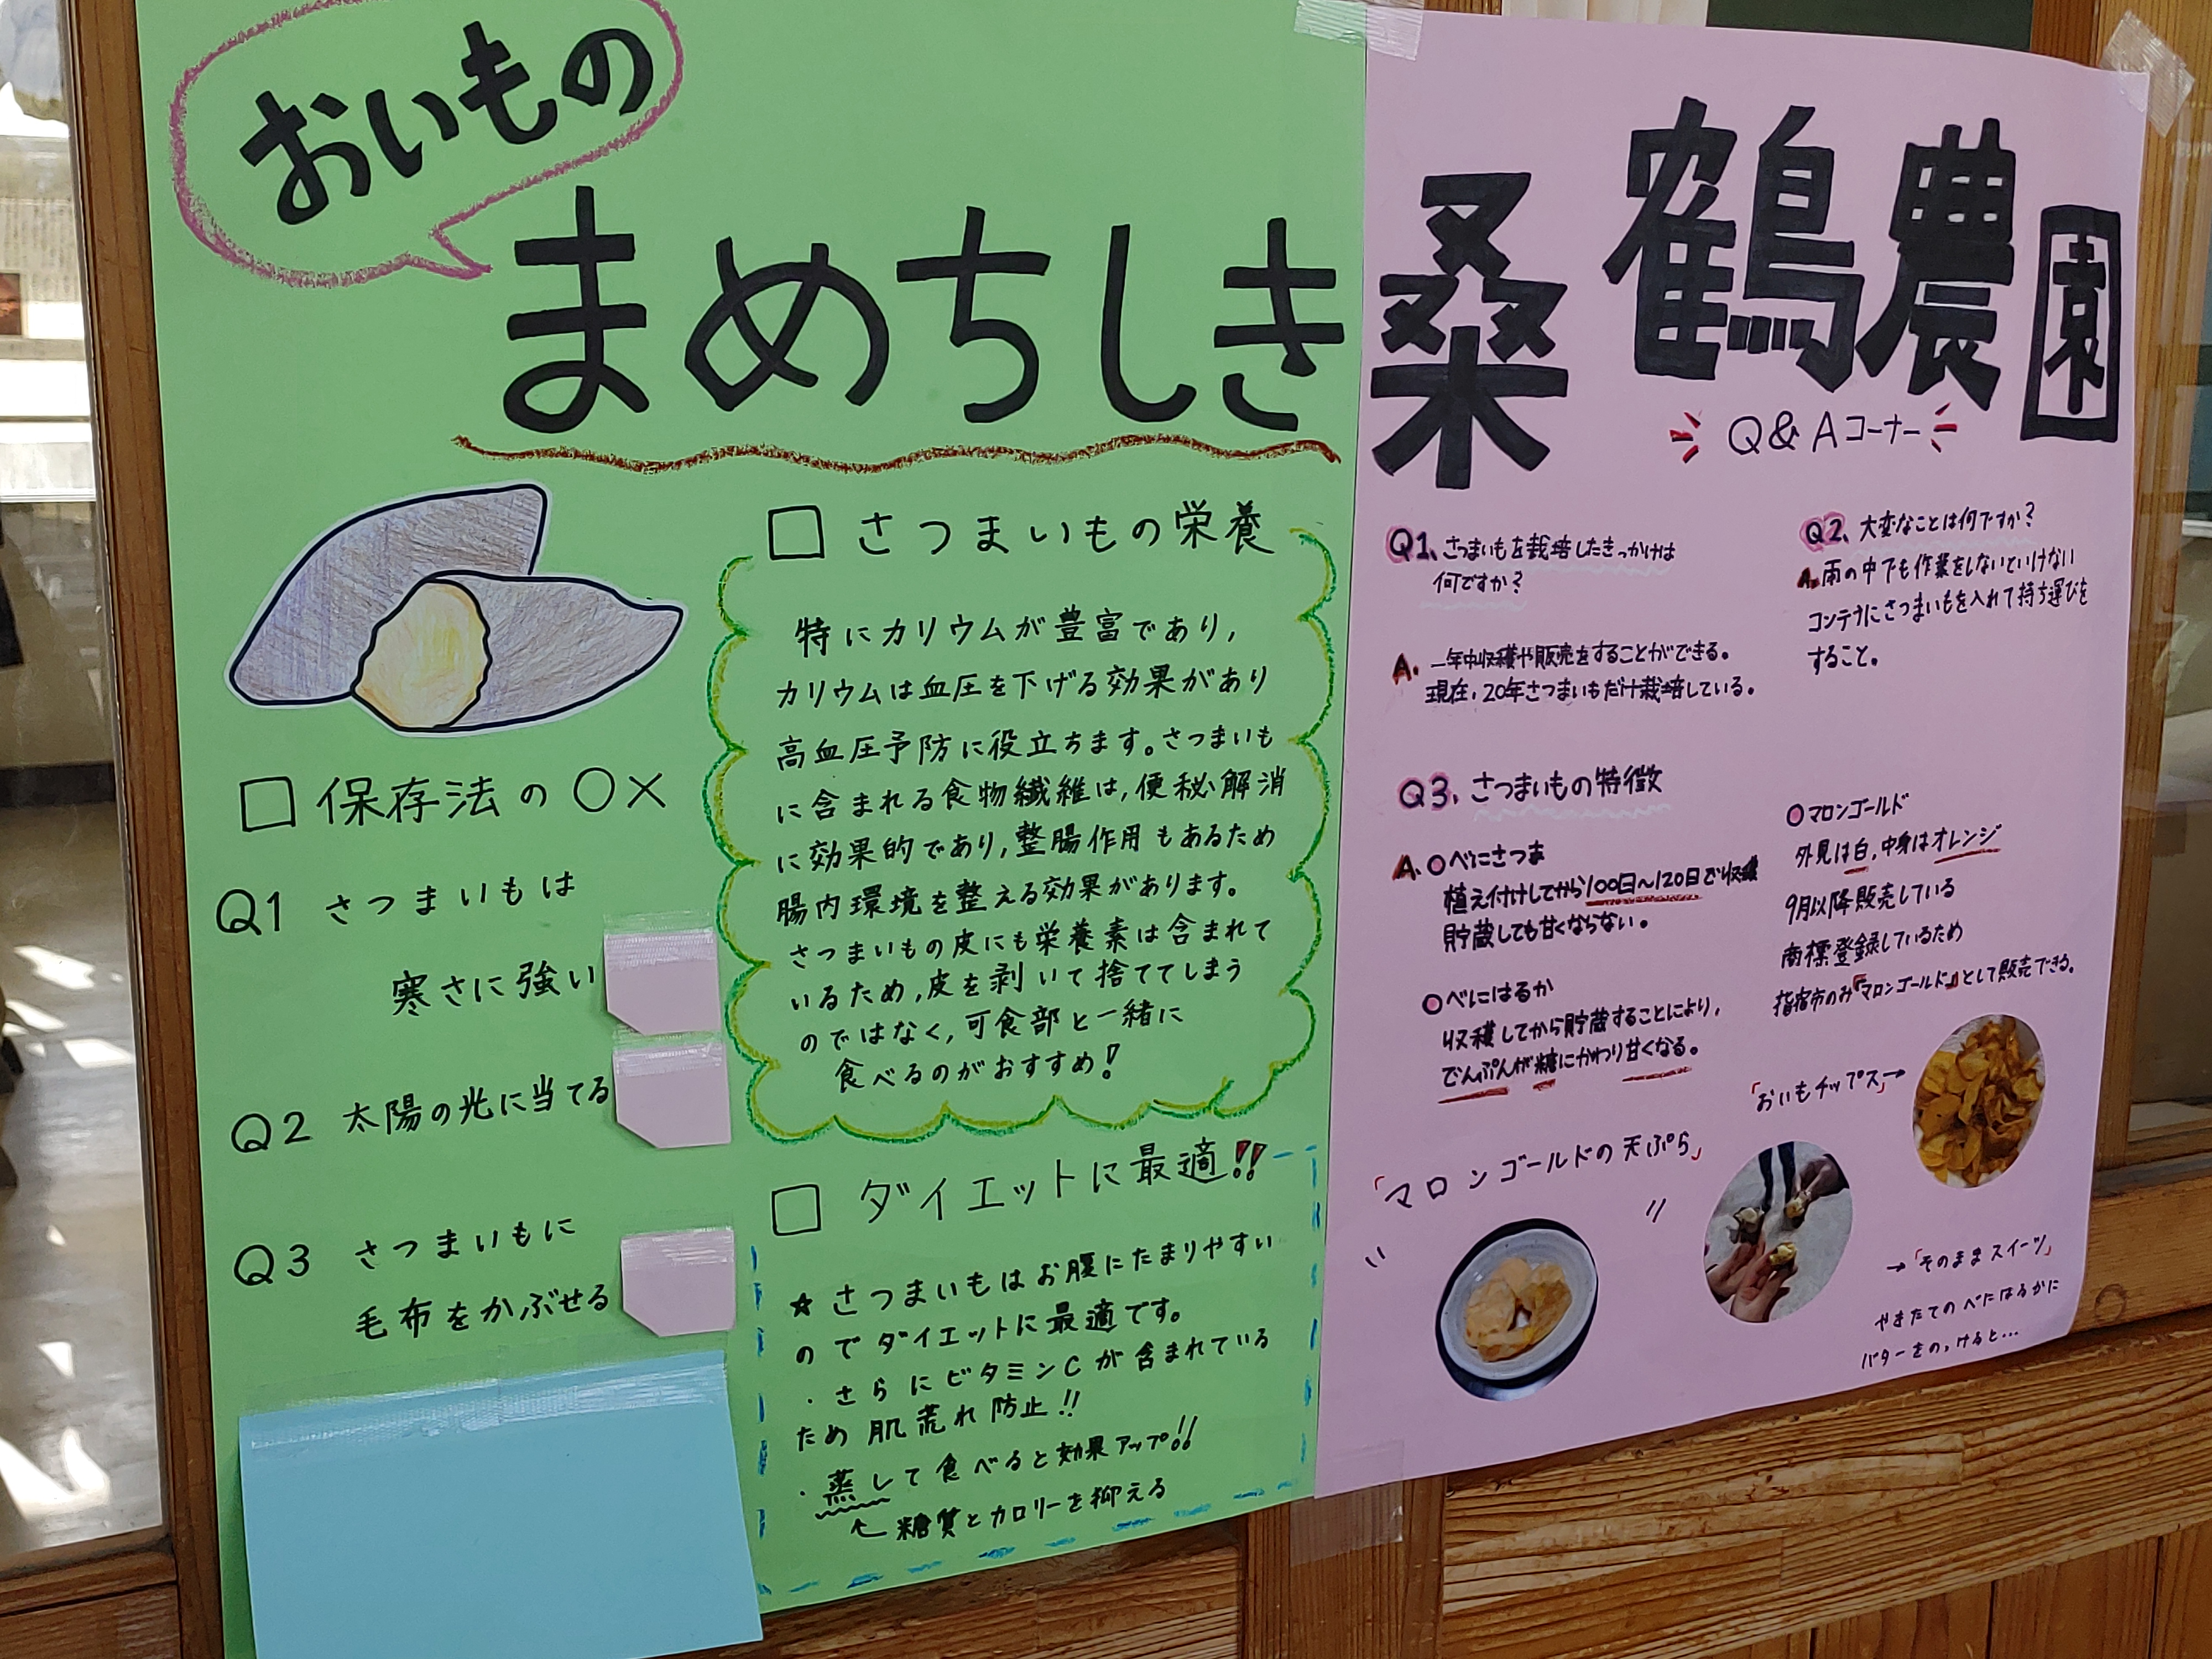 おいもの
まめちしき
□ 保存法の○×
Q1 さつまいもは
寒さに強い
Q2 太陽の光に当てる
Q3 さつまいもに
毛布をかぶせる
□ さつまいもの栄養
特にカリウムが豊富であり,
カリウムは血圧を下げる効果があり
高血圧予防に役立ちます。さつまいも
に含まれる食物繊維は,便秘解消
に効果的であり,整腸作用もあるため
腸内環境を整える効果があります。
さつまいもの皮にも栄養素は含まれて
いるため,皮を剥いて捨ててしまう
のではなく,可食部と一緒に
食べるのがおすすめ!
□ ダイエットに最適!!
☆さつまいもはお腹にたまりやすい
のでダイエットに最適です。
・さらにビタミンCが含まれている
ため肌荒れ防止!!
・蒸して食べると効果アップ!!
糖質とカロリーを抑える
桑鶴農園
Q&Aコーナー
Q1、さつまいもを栽培したきっかけは
何ですか?
A. 一年中収穫や販売をすることができる。
現在、20年さつまいもだけ栽培している。
Q2、大変なことは何ですか?
A.雨の中でも作業をしないといけない
コンテナにさつまいもを入れて持ち運びを
すること。
Q3、さつまいもの特徴
A.○べにさつま
植え付けしてから100日〜120日で収穫
貯蔵しても甘くならない。
○べにはるか
収穫してから貯蔵することにより,
でんぷんが糖にかわり甘くなる。
○マロンゴールド
外見は白,中身はオレンジ
9月以降販売している
商標登録しているため
指宿市のみ『マロンゴールド』として販売できる。
「おいもチップス」→
「マロンゴールドの天ぷら」
→「そのままスイーツ」
やきたてのべにはるかに
バターをのっけると…